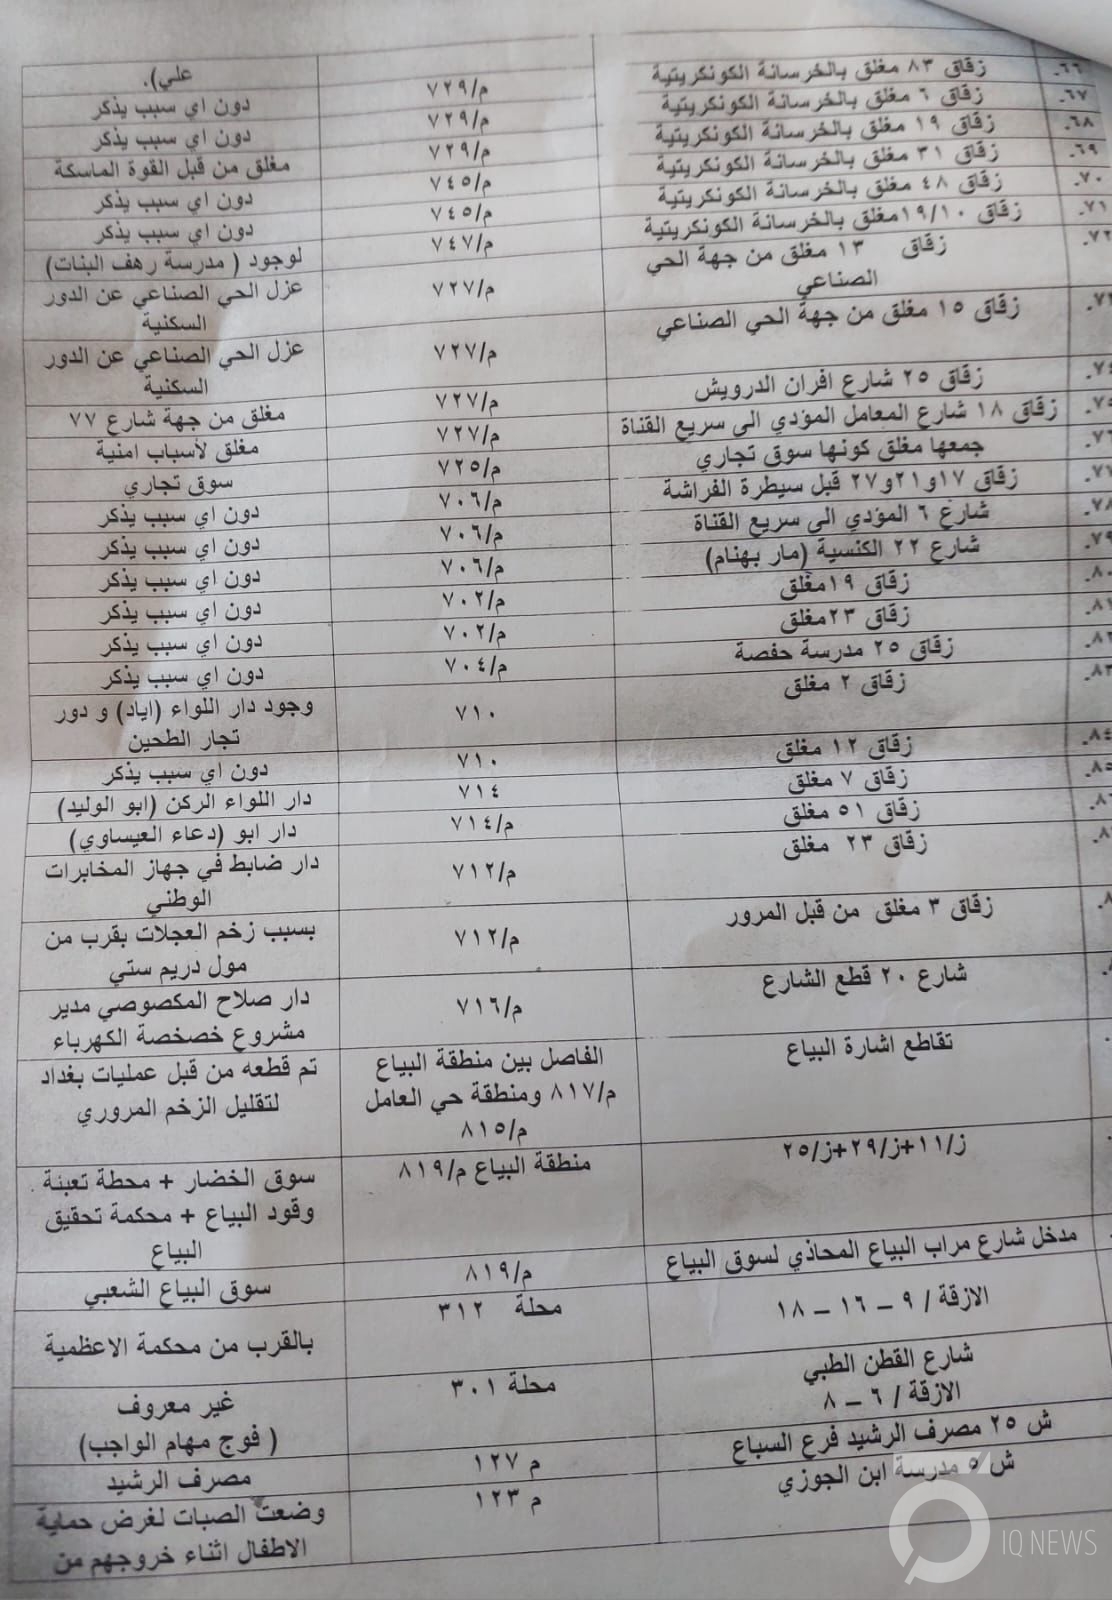 علي).
٦٦. زقاق ٨٣ مغلق بالخرسانة الكونكريتية م/٧٢٩ دون اي سبب يذكر
٦٧. زقاق ٦ مغلق بالخرسانة الكونكريتية م/٧٢٩ دون اي سبب يذكر
٦٨. زقاق ١٩ مغلق بالخرسانة الكونكريتية م/٧٢٩ مغلق من قبل القوة الماسكة
٦٩. زقاق ٣١ مغلق بالخرسانة الكونكريتية م/٧٤٥ دون اي سبب يذكر
٧٠. زقاق ٤٨ مغلق بالخرسانة الكونكريتية م/٧٤٥ دون اي سبب يذكر
٧١. زقاق ١٩/١٠مغلق بالخرسانة الكونكريتية م/٧٤٧ لوجود ( مدرسة رهف البنات)
٧٢. زقاق ١٣ مغلق من جهة الحي
الصناعي م/٧٢٧ عزل الحي الصناعي عن الدور
السكنية
٧٣. زقاق ١٥ مغلق من جهة الحي الصناعي م/٧٢٧ عزل الحي الصناعي عن الدور
السكنية
٧٤. زقاق ٢٥ شارع افران الدرويش م/٧٢٧ مغلق من جهة شارع ٧٧
٧٥. زقاق ١٨ شارع المعامل المؤدي الى سريع القناة م/٧٢٧ مغلق لأسباب امنية
٧٦. جمعها مغلق كونها سوق تجاري م/٧٢٥ سوق تجاري
٧٧. زقاق ١٧و٢١و٢٧ قبل سيطرة الفراشة م/٧٠٦ دون اي سبب يذكر
٧٨. شارع ٦ المؤدي الى سريع القناة م/٧٠٦ دون اي سبب يذكر
٧٩. شارع ٢٢ الكنسية (مار بهنام) م/٧٠٦ دون اي سبب يذكر
٨٠. زقاق ١٩مغلق م/٧٠٢ دون اي سبب يذكر
٨١. زقاق ٢٣مغلق م/٧٠٢ دون اي سبب يذكر
٨٢. زقاق ٢٥ مدرسة حفصة م/٧٠٤ دون اي سبب يذكر
٨٣. زقاق ٢ مغلق ٧١٠ وجود دار اللواء (اياد) و دور
تجار الطحين
٨٤. زقاق ١٢ مغلق ٧١٠ دون اي سبب يذكر
٨٥. زقاق ٧ مغلق ٧١٤ دار اللواء الركن (ابو الوليد)
زقاق ٥١ مغلق م/٧١٤ دار ابو (دعاء العيساوي)
زقاق ٢٣ مغلق م/٧١٢ دار ضابط في جهاز المخابرات
الوطني
زقاق ٣ مغلق من قبل المرور م/٧١٢ بسبب زخم العجلات بقرب من
مول دريم ستي
شارع ٢٠ قطع الشارع م/٧١٦ دار صلاح المكصوصي مدير
مشروع خصخصة الكهرباء
تقاطع اشارة البياع الفاصل بين منطقة البياع تم قطعه من قبل عمليات بغداد
م/٨١٧ ومنطقة حي العامل لتقليل الزخم المروري
م/٨١٥
ز/١١+ز/٢٩+ز/٢٥ منطقة البياع م/٨١٩ سوق الخضار + محطة تعبئة
وقود البياع + محكمة تحقيق
البياع
مدخل شارع مراب البياع المحاذي لسوق البياع م/٨١٩ سوق البياع الشعبي
الازقة / ٩ – ١٦ – ١٨ محلة ٣١٢ بالقرب من محكمة الاعظمية
شارع القطن الطبي
الازقة / ٦ – ٨ محلة ٣٠١ غير معروف
( فوج مهام الواجب)
ش ٢٥ مصرف الرشيد فرع السباع م ١٢٧ مصرف الرشيد
ش ٥ مدرسة ابن الجوزي م ١٢٣ وضعت الصبات لغرض حماية
الاطفال اثناء خروجهم من
IQ NEWS